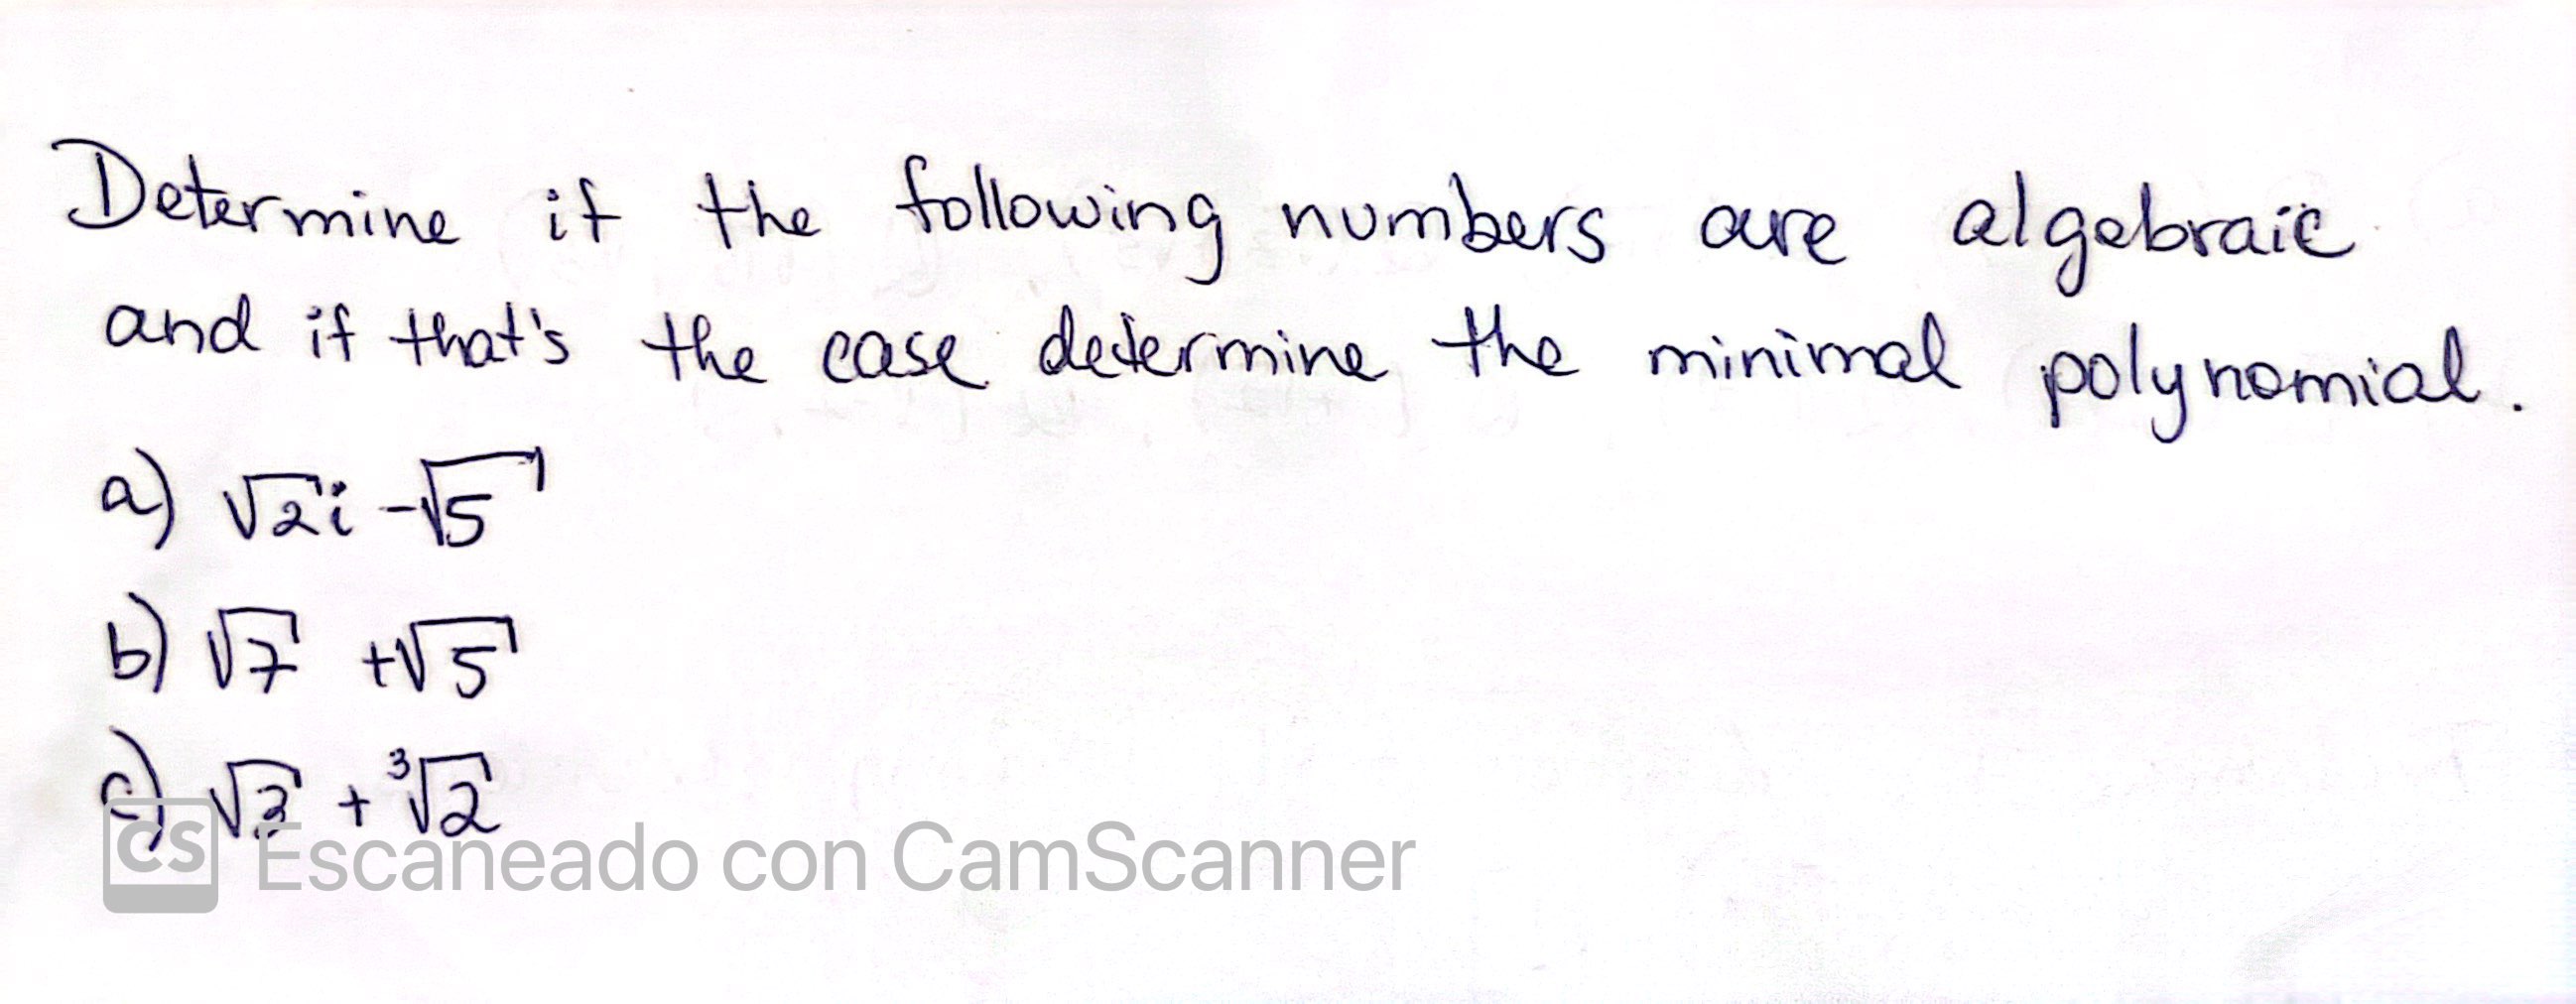 Determine if the following numbers are algebraic
and if that's the case determine the minimal polynomial.
a) √2i - √5
b) √7 + √5
c) √3 + ³√2
CS Escaneado con CamScanner